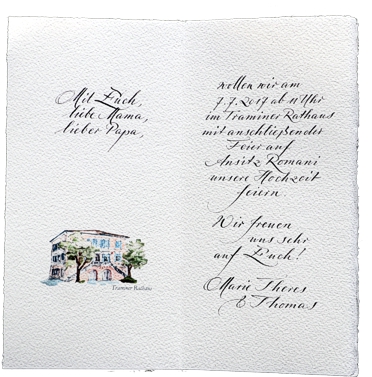 Mit Euch,
liebe Mama,
lieber Papa,
Traminer Rathaus
wollen wir am
7.7.2017 ab 11 Uhr
im Traminer Rathaus
mit anschließender
Feier auf
Ansitz Romani
unsere Hochzeit
feiern
Wir freuen
uns sehr
auf Euch!
Marie Theres
& Thomas